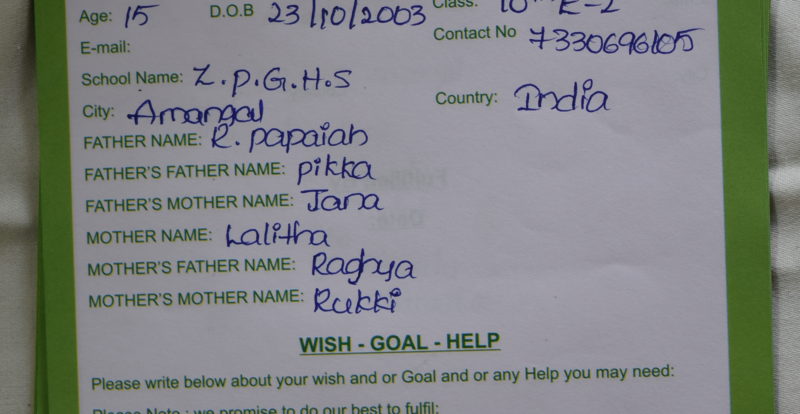 Age: 15 D.O.B 23/10/2003 Class: 10th E-2
E-mail: Contact No 7330696105
School Name: Z.P.G.H.S
City: Amangal Country: India
FATHER NAME: R. papaiah
FATHER'S FATHER NAME: pikka
FATHER'S MOTHER NAME: Jana
MOTHER NAME: Lalitha
MOTHER'S FATHER NAME: Raghya
MOTHER'S MOTHER NAME: Rukki
WISH - GOAL - HELP
Please write below about your wish and or Goal and or any Help you may need:
Please Note : we promise to do our best to fulfil: